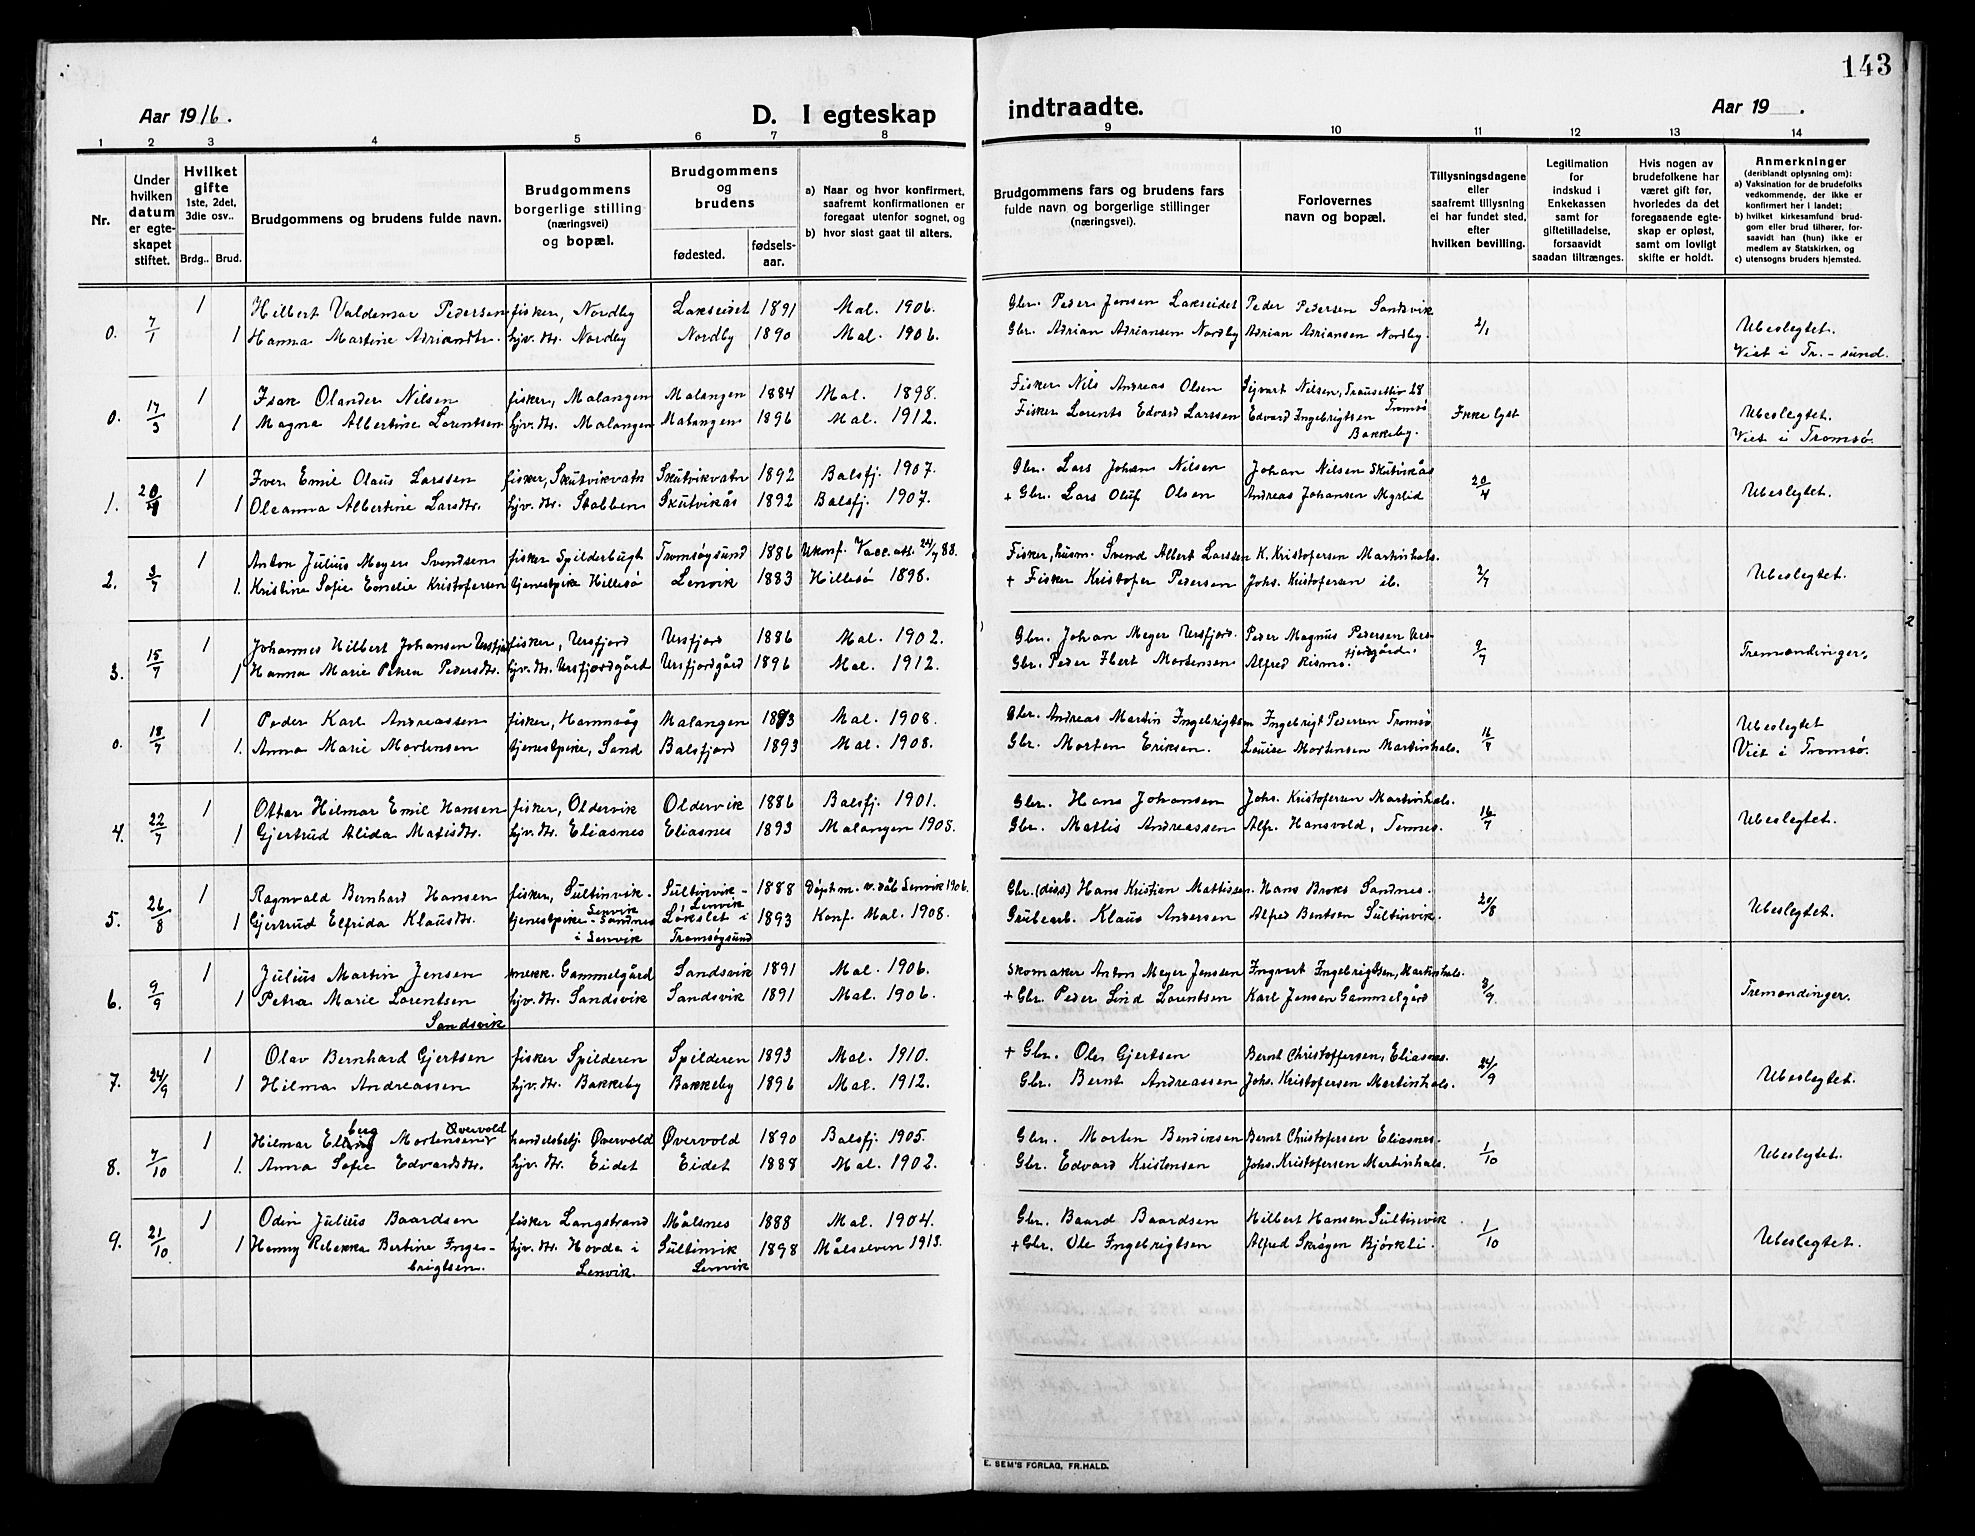 143
Aar 1916.
D. I egteskap
indtraadte.
Aar 19 .
1 2 3 4 5 6 7 8
9 10 11 12 13 14
Nr.
Under hvilken datum er egteskapet stiftet.
Hvilket gifte 1ste, 2det, 3die osv..
Brdg.. Brud.
Brudgommens og brudens fulde navn.
Brudgommens borgerlige stilling (næringsvei) og bopæl.
Brudgommens og brudens
fødested. fødsels-aar.
a) Naar og hvor konfirmert, saafremt konfirmationen er foregaat utenfor sognet, og
b) hvor sidst gaat til alters.
Brudgommens fars og brudens fars fulde navn og borgerlige stillinger (næringsvei).
Forlovernes navn og bopæl.
Tillysningsdagene eller saafremt tillysning ei har fundet sted, efter hvilken bevilling.
Legitimation for indskud i Enkekassen samt for giftetilladelse, forsaavidt saadan tiltrænges.
Hvis nogen av brudefolkene har været gift før, hvorledes da det foregaaende egteskap er opløst, samt om lovligt skifte er holdt.
Anmerkninger (deriblandt oplysning om):
a) Vaksination for de brudefolks vedkommende, der ikke er konfirmert her i landet;
b) hvilket kirkesamfund brudgom eller brud tilhører, forsaavidt han (hun) ikke er medlem av Statskirken, og
c) utensogns bruders hjemsted.
1 Hilbert Valdemar Pedersen fisker, Nordby Lakseidet 1891 Mal. 1906. Gbr. Peder Jensen Lakseidet Peder Pedersen Sandvik
0. 7/1 1 Hanna Martine Adriandtr. hjv. dtr. Nordby Nordby 1890 Mal. 1906. Gbr. Adrian Adriansen Nordby Adrian Adriansen Nordby. 2/1 Ubeslegtet.
Viet i Tr.-sund.
1 Isak Olander Nilsen fisker, Malangen Malangen 1884 Mal. 1898. Fisker Nils Andreas Olsen Sigvart Nilsen, 28 Tromsø
0. 17/3 1 Magna Albertine Lorentsen hjv. dtr. Malangen Malangen 1896 Mal. 1912. Fisker Lorents Edvard Larssen Edvard Ingebrigtsen Bakkeby. Ikke lyst Ubeslegtet.
Viet i Tromsø.
1 Iver Emil Olaus Larssen fisker, Skutvikvatn Skutvikvatn 1892 Balsfj. 1907. Gbr. Lars Johan Nilsen Johan Nilsen Skutvikås
1. 1 Oleanna Albertine Larsdtr. hjv. dtr. Stobben Skutvikås 1892 Balsfj. 1907. + Gbr. Lars Oluf Olsen Andreas Johansen Myrlid 20/4 Ubeslegtet.
1 Anton Julius Meyer Svendsen fisker Spilderbugt Tromsøysund 1886 Ukonf. Vacc. att. 24/7 88. Fisker, husm. Svend Albert Larssen K. Kristofersen Martinhals.
2. 1. Kristine Sofie Emelie Kristofersen tjenestpike Hillesø Lenvik 1883 Hillesø 1898. + Fisker Kristofer Pedersen Johs. Kristofersen ib. 2/7 Ubeslegtet.
1 Johannes Hilbert Johansen fisker, Ursfjord Ursfjord 1886 Mal. 1902. Gbr. Johan Meyer Ursfjord. Peder Magnus Pedersen Ursfjordgård.
3. 15/7 1 Hanna Marie Petra Pedersdtr. hjv. dtr. Ursfjordgård Ursfjordgård 1896 Mal. 1912. Gbr. Peder Ebert Mortensen Alfred Rismo. 9/7 Tremændinger.
1 Peder Karl Andreassen fisker, Hamnvåg Malangen Mal. 1908. Gbr. Andreas Martin Ingebrigtsen Ingebrigt Pedersen Tromsø Ubeslegtet
0. 18/7 1. Anna Marie Mortensen tjenestpike, Sand Balsfjord 1893 Mal. 1908. Gbr. Morten Eriksen. Louise Mortensen Martinhals. 16/7 Viet i Tromsø.
1 Ottar Hilmar Emil Hansen fisker, Oldervik Oldervik 1886 Balsfj. 1901. Gbr. Hans Johansen Johs. Kristofersen Martinhals.
4. 22/7 1 Gjertrud Alida Matisdtr. hjv. dtr. Eliasnes Eliasnes 1893 Malangen 1908. Gbr. Mattis Andreassen Alfr. Hansvold, Tennes. 16/7 Ubeslegtet.
1 Ragnvald Bernhard Hansen fisker, Sultinvik - Lenvik Sultinvik - Lenvik 1888 Døpt m. v. dåb Lenvik 1906. Gbr. (diss) Hans Kristian Mattissen Hans Broks Sandnes.
5. 26/8 1 Gjertrud Elfrida Klausdtr. tjenestpike - Sandnes i Lenvik Lökslet i Tromsøysund 1893 Konf. Mal. 1908. Grubearb. Klaus Andersen Alfred Bentsen Sultinvik. 20/8 Ubeslegtet.
1 Julius Martin Jensen snekk. Gammelgård Sandsvik 1891 Mal. 1906. Skomaker Anton Meyer Jenssen Ingvart Ingebrigtsen, Martinhals.
6. 9/9 1 Petra Marie Lorentsen Sandsvik hjv. dtr. Sandsvik Sandsvik 1891 Mal. 1906. + Gbr. Peder Lind Lorentsen Karl Jensen Gammelgård 3/9. Tremændinger.
1 Olav Bernhard Gjertsen fisker Spilderen Spilderen 1893 Mal. 1910. + Gbr. Ole Gjertsen Bernt Christoffersen, Eliasnes.
7. 24/9 1 Hilma Andreassen hjv. dtr. Bakkeby Bakkeby 1896 Mal. 1912. Gbr. Bernt Andreassen Johs. Kristofersen Martinhals. 24/9 Ubeslegtet.
1 Hilmar Mortensen Øvervold handelsbetj. Øvervold Øvervold 1890 Balsfj. 1905. Gbr. Morten Bendiksen Bernt Christofersen Eliasnes.
8. 7/10 1. Anna Sofie Edvardsdtr. hjv. dtr. Eidet Eidet 1888 Mal. 1902. Gbr. Edvard Kristensen Johs. Kristofersen Martinhals. 1/10 Ubeslegtet.
1 Odin Julius Baardsen fisker Langstrand Målsnes 1888 Mal. 1904. Gbr. Baard Baardsen Hilbert Hansen Sultinvik
9. 21/10 1 Henny Rebekka Bertine Ingebrigtsen. hjv. dtr. Hovde i Lenvik. Sultinvik Lenvik 1898 Målselven 1913. + Gbr. Ole Ingebrigtsen Alfred Skrøgen Bjørkli. 1/10 Ubeslegtet.
E. SEM'S FORLAG, FR.HALD.